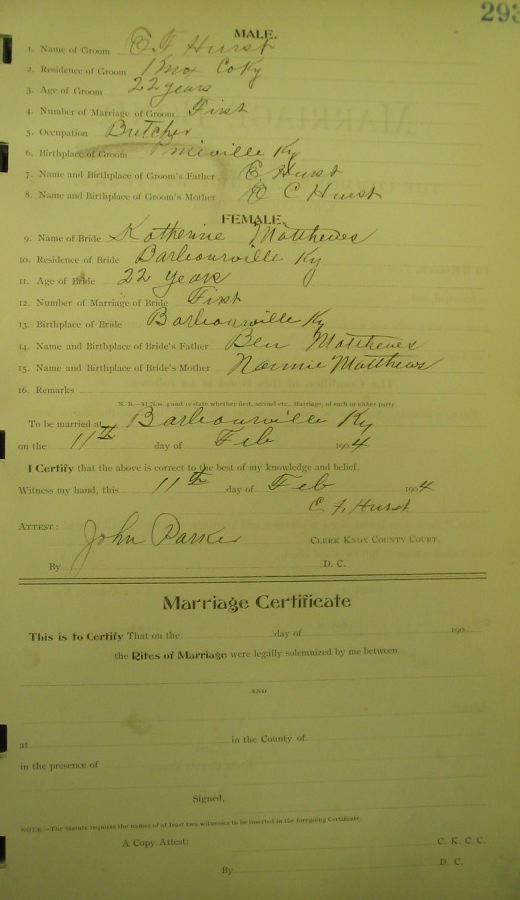 293
MALE.
1. Name of Groom E F Hurst
2. Residence of Groom Knox Co Ky
3. Age of Groom 22 years
4. Number of Marriage of Groom First
5. Occupation Butcher
6. Birthplace of Groom Pineville Ky
7. Name and Birthplace of Groom's Father E Hurst
8. Name and Birthplace of Groom's Mother C Hurst
FEMALE.
9. Name of Bride Katherine Matthews
10. Residence of Bride Barbourville Ky
11. Age of Bride 22 years
12. Number of Marriage of Bride First
13. Birthplace of Bride Barbourville Ky
14. Name and Birthplace of Bride's Father Ben Matthews
15. Name and Birthplace of Bride's Mother Nannie Matthews
16. Remarks
N. B.—At Nos. 4 and 12 state whether first, second etc., Marriage, of each or either party.
To be married at Barbourville Ky
on the 11th day of Feb 1904
I Certify that the above is correct to the best of my knowledge and belief.
Witness my hand, this 11th day of Feb 1904
E. F. Hurst
ATTEST:
John Parker CLERK KNOX COUNTY COURT.
By D. C.
Marriage Certificate
This is to Certify That on the day of 190
the Rites of Marriage were legally solemnized by me between
AND
at in the County of
in the presence of
Signed,
NOTE.—The Statute requires the names of at least two witnesses to be inserted in the foregoing Certificate.
A Copy Attest: C. K. C. C.
By D. C.